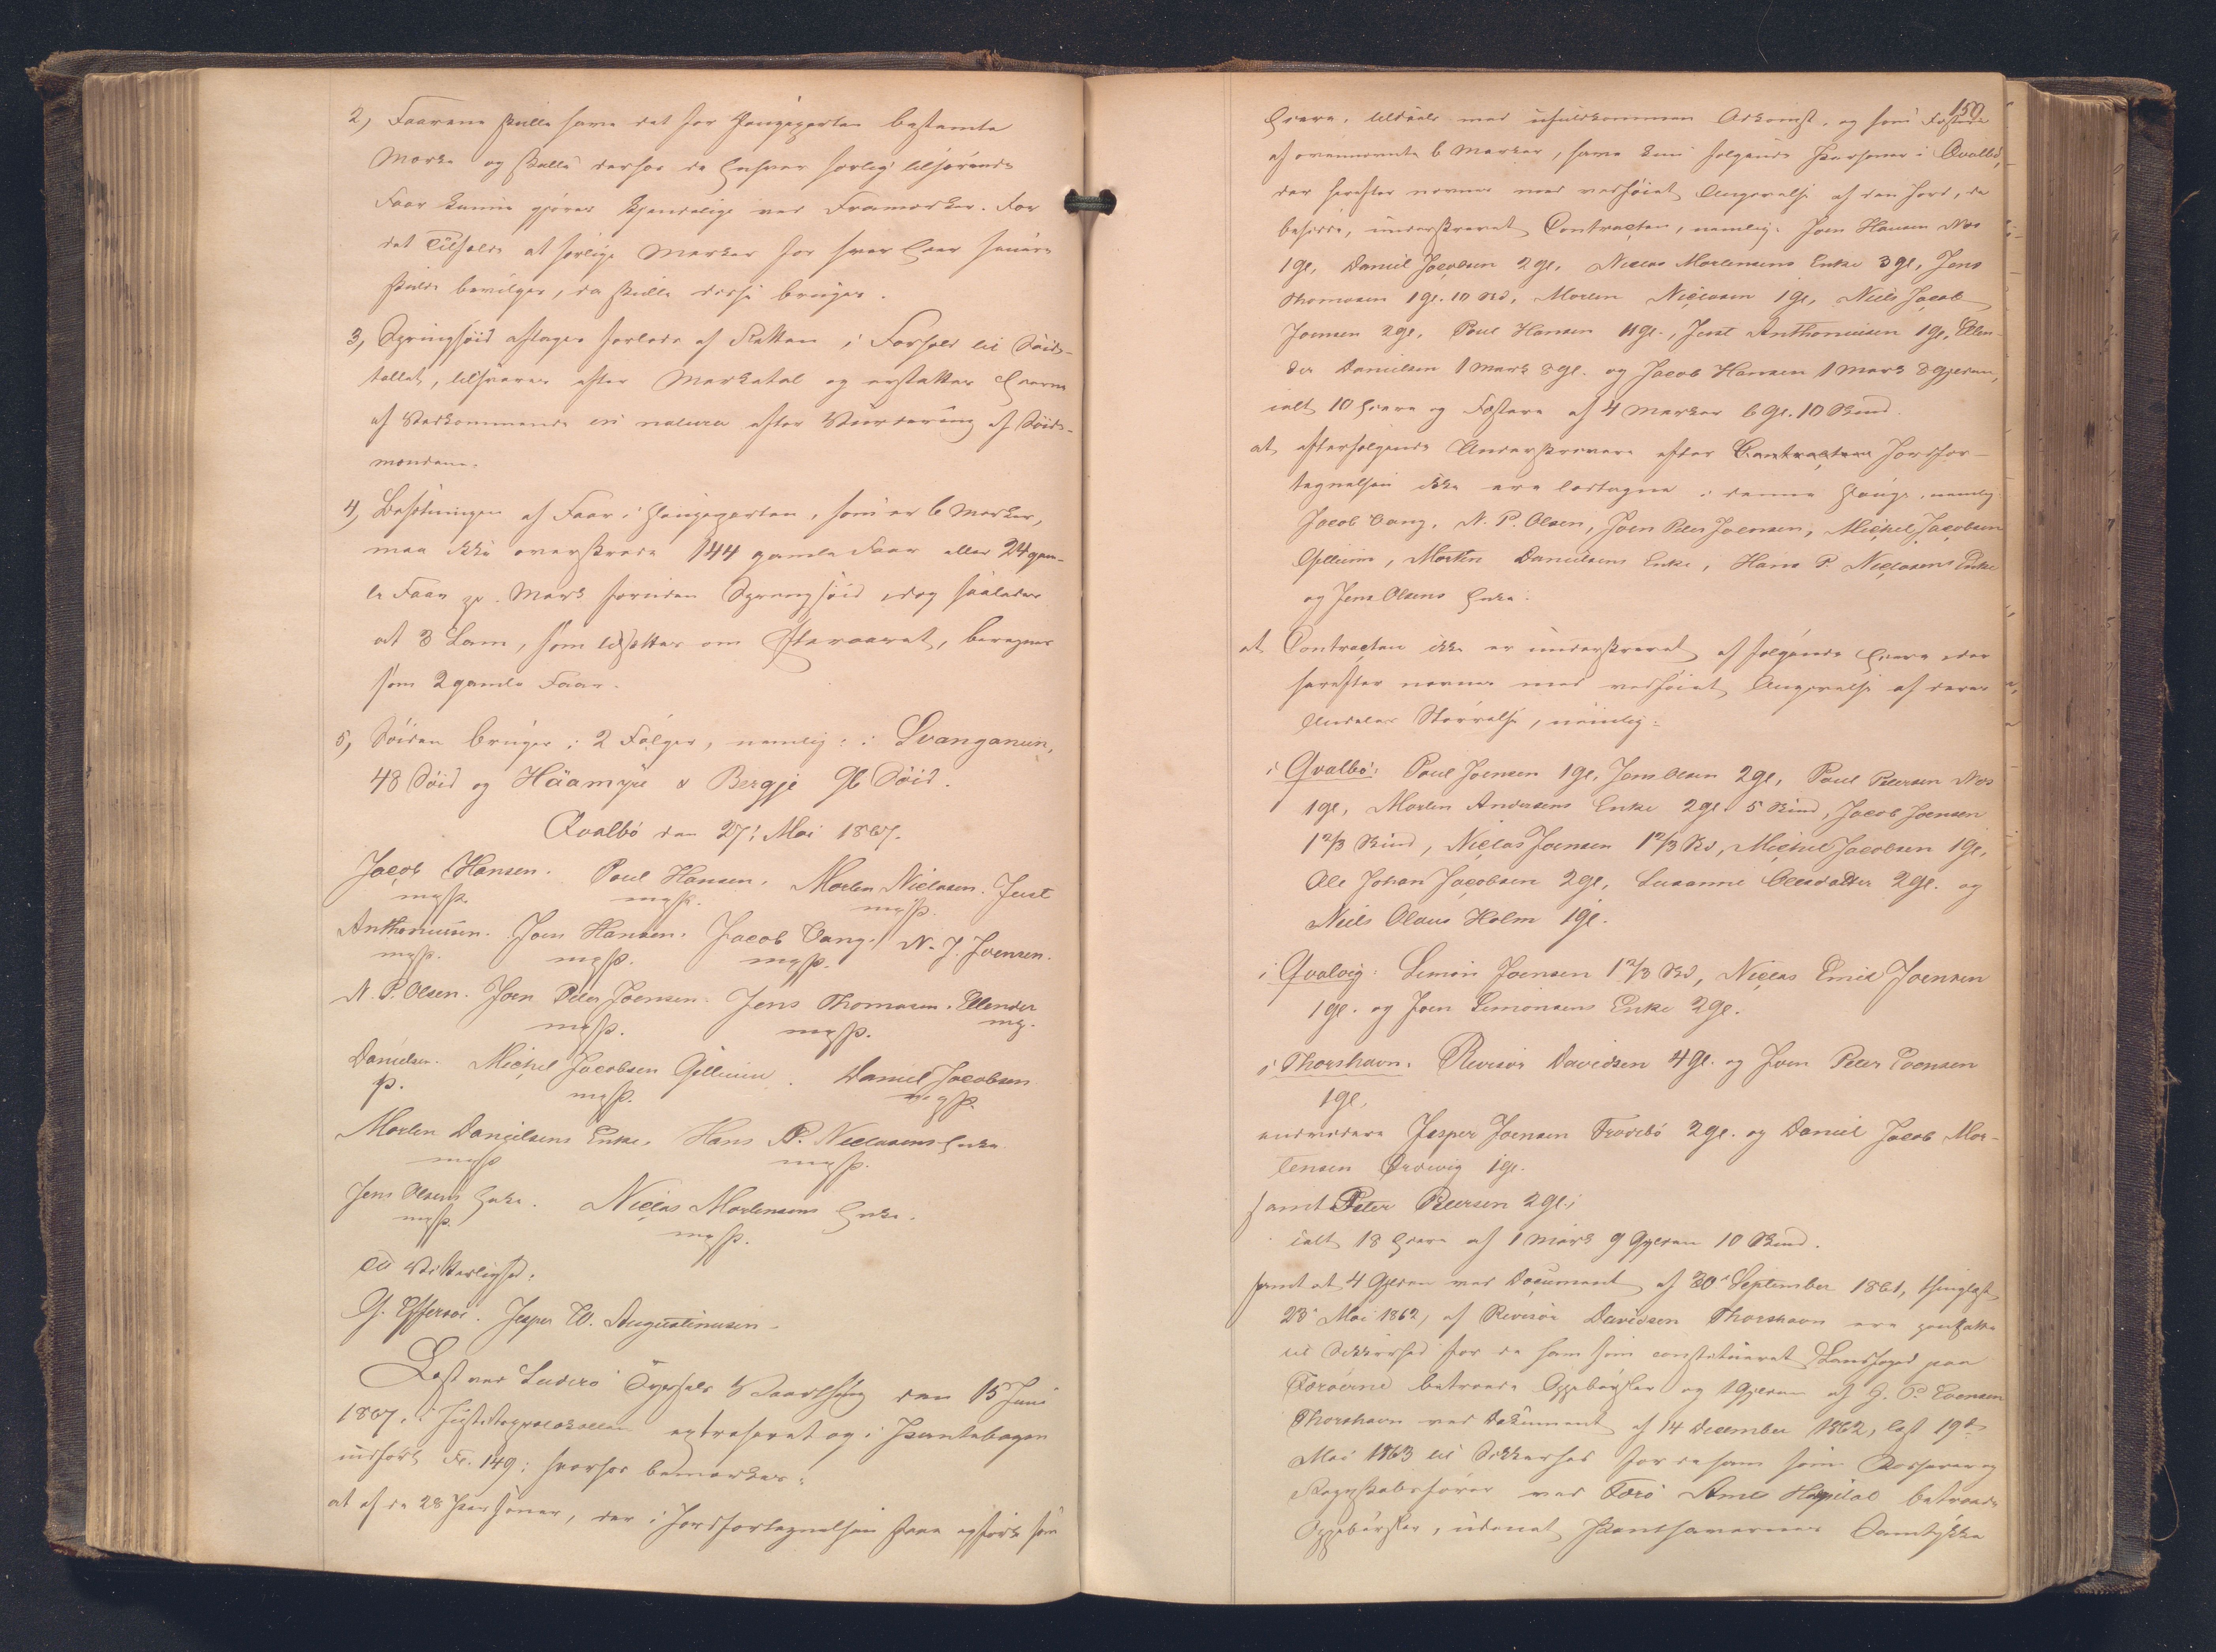 2, Faarene skulle have det for Haugeparten bestemte
Mærke og skulle derfor de Enhver særlig tilhørende
Faar kunne gjøres kjendelige ved Framærker. For
det Tilfælde at særlige Mærker for hver Eier senere
skulde bevilges, da skulle disse bruges.
3, Springsöid aftages forlods af Slætten i Forhold til Söid-
tallet, tilsvares efter Markatal og erstattes Eierne
af Vedkommende in natura efter Vurdering af Söids-
mændene.
4, Besætningen af Faar i Haugeparten, som er 6 Marker,
maa ikke overskride 144 gamle Faar eller 24 gam-
le Faar pr. Mark foruden Springsöid, dog saaledes
at 3 Lam, som udsættes om Efteraaret, beregnes
som 2 gamle Faar.
5, Söiden bruges i 2 Følger, nemlig: i Svanganum,
48 Söid og Häamyre & Bergje 96 Söid.
Qvalbö den 27' Mai 1867.
Jacob Hansen. Poul Hansen. Morten Niclasen. Just
m.p.s. m.p.s. m.p.s.
Anthoniusen. Joen Hansen. Jacob Vang. N. J. Joensen.
m.p.s. m.p.s. m.p.s.
N. P. Olsen. Joen Peter Joensen. Jens Thomasen. Ellender
m.p.s. m.p.s. m.p.
Danielsen. Michel Jacobsen Gillium. Daniel Jacobsen
p. m.p.s. m.p.s.
Morten Danielsens Enke. Hans P. Niclasens Enke
m.p.s. m.p.s.
Jens Olsens Enke. Niclas Mortensens Enke.
m.p.s. m.p.s.
Til Vitterlighed.
G. Effersöe. Jesper W. Augustinusen.
Læst ved Suderö Syssels Vaarthing den 15 Juni
1867, i Justitsprotokollen extraheret og i Pantebogen
indført Fr. 149; hvorhos bemærkes:
at af de 28 Personer, der i Jordfortegnelsen staae opførte som
150
Eiere, tildeels med ufuldkommen Adkomst, og som Fæstere
af ovennævnte 6 Marker, have kun følgende Personer i Qvalbö,
der herefter nævnes med vedföiet Angivelse af den Jord, de
besidde, underskrevet Contracten, nemlig: Joen Hansen Næs
1 gl, Daniel Jacobsen 2 gl, Niclas Mortensens Enke 3 gl, Jens
Thomasen 1 gl. 10 Skd, Morten Niclasen 1 gl, Niels Jacob
Joensen 2 gl, Poul Hansen 11 gl., Just Anthoniusen 1 gl, Ellen-
der Danielsen 1 Mark 8 gl. og Jacob Hansen 1 Mark 8 Gylden,
ialt 10 Eiere og Fæstere af 4 Marker 6 Gl. 10 Skind.
at efterfølgende Underskrivere efter Contracten Jordfor-
tegnelsen ikke ere lodtagne i denne Hauge, nemlig
Jacob Vang, N. P. Olsen, Joen Peter Joensen, Michel Jacobsen
Gillium, Morten Danielsens Enke, Hans P. Niclasens Enke
og Jens Olsens Enke.
at Contracten ikke er underskrevet af følgende Eiere, der
herefter nævnes med vedföiet Angivelse af deres
Andeles Størrelse, nemlig:
i Qvalbö: Poul Joensen 1 gl, Jens Olsen 2 gl, Poul Petersen Næs
1 gl, Morten Andersens Enke 2 gl 5 Skind, Jacob Joensen
1 2/3 Skind, Niclas Joensen 1 2/3 Skd, Michel Jacobsen 1 gl,
Ole Johan Jacobsen 2 gl, Susanne Olesdatter 2 gl. og
Niels Olaus Holm 1 gl.
i Qvalvig: Simon Joensen 1 2/3 Skd, Niclas Emil Joensen
1 gl. og Joen Simonsens Enke 2 gl.
i Thorshavn: Revisor Davidsen 4 gl. og Joen Peter Evensen
1 gl,
endvidere Jesper Joensen Frodebö 2 gl. og Daniel Jacob Mor-
tensen Ördevig 1 gl.
samt Peter Petersen 2 gl;
ialt 18 Eiere af 1 Mark 9 Gylden 10 Skind.
samt at 4 Gylden ved Document af 30' September 1861, thinglæst
23' Mai 1862, af Revisor Davidsen Thorshavn ere pantsatte
til Sikkerhed for de ham som constitueret Landfoged paa
Færöerne betroede Oppebørsler og 1 Gylden af J. P. Evensen
Thorshavn ved Dokument af 14 December 1862, læst 19de
Mai 1863 til Sikkerhed for de ham som Kasserer og
Regnskabsfører ved Færö Amts Hospital betroede
Oppebørsler, uden at Panthavernes Samtykke